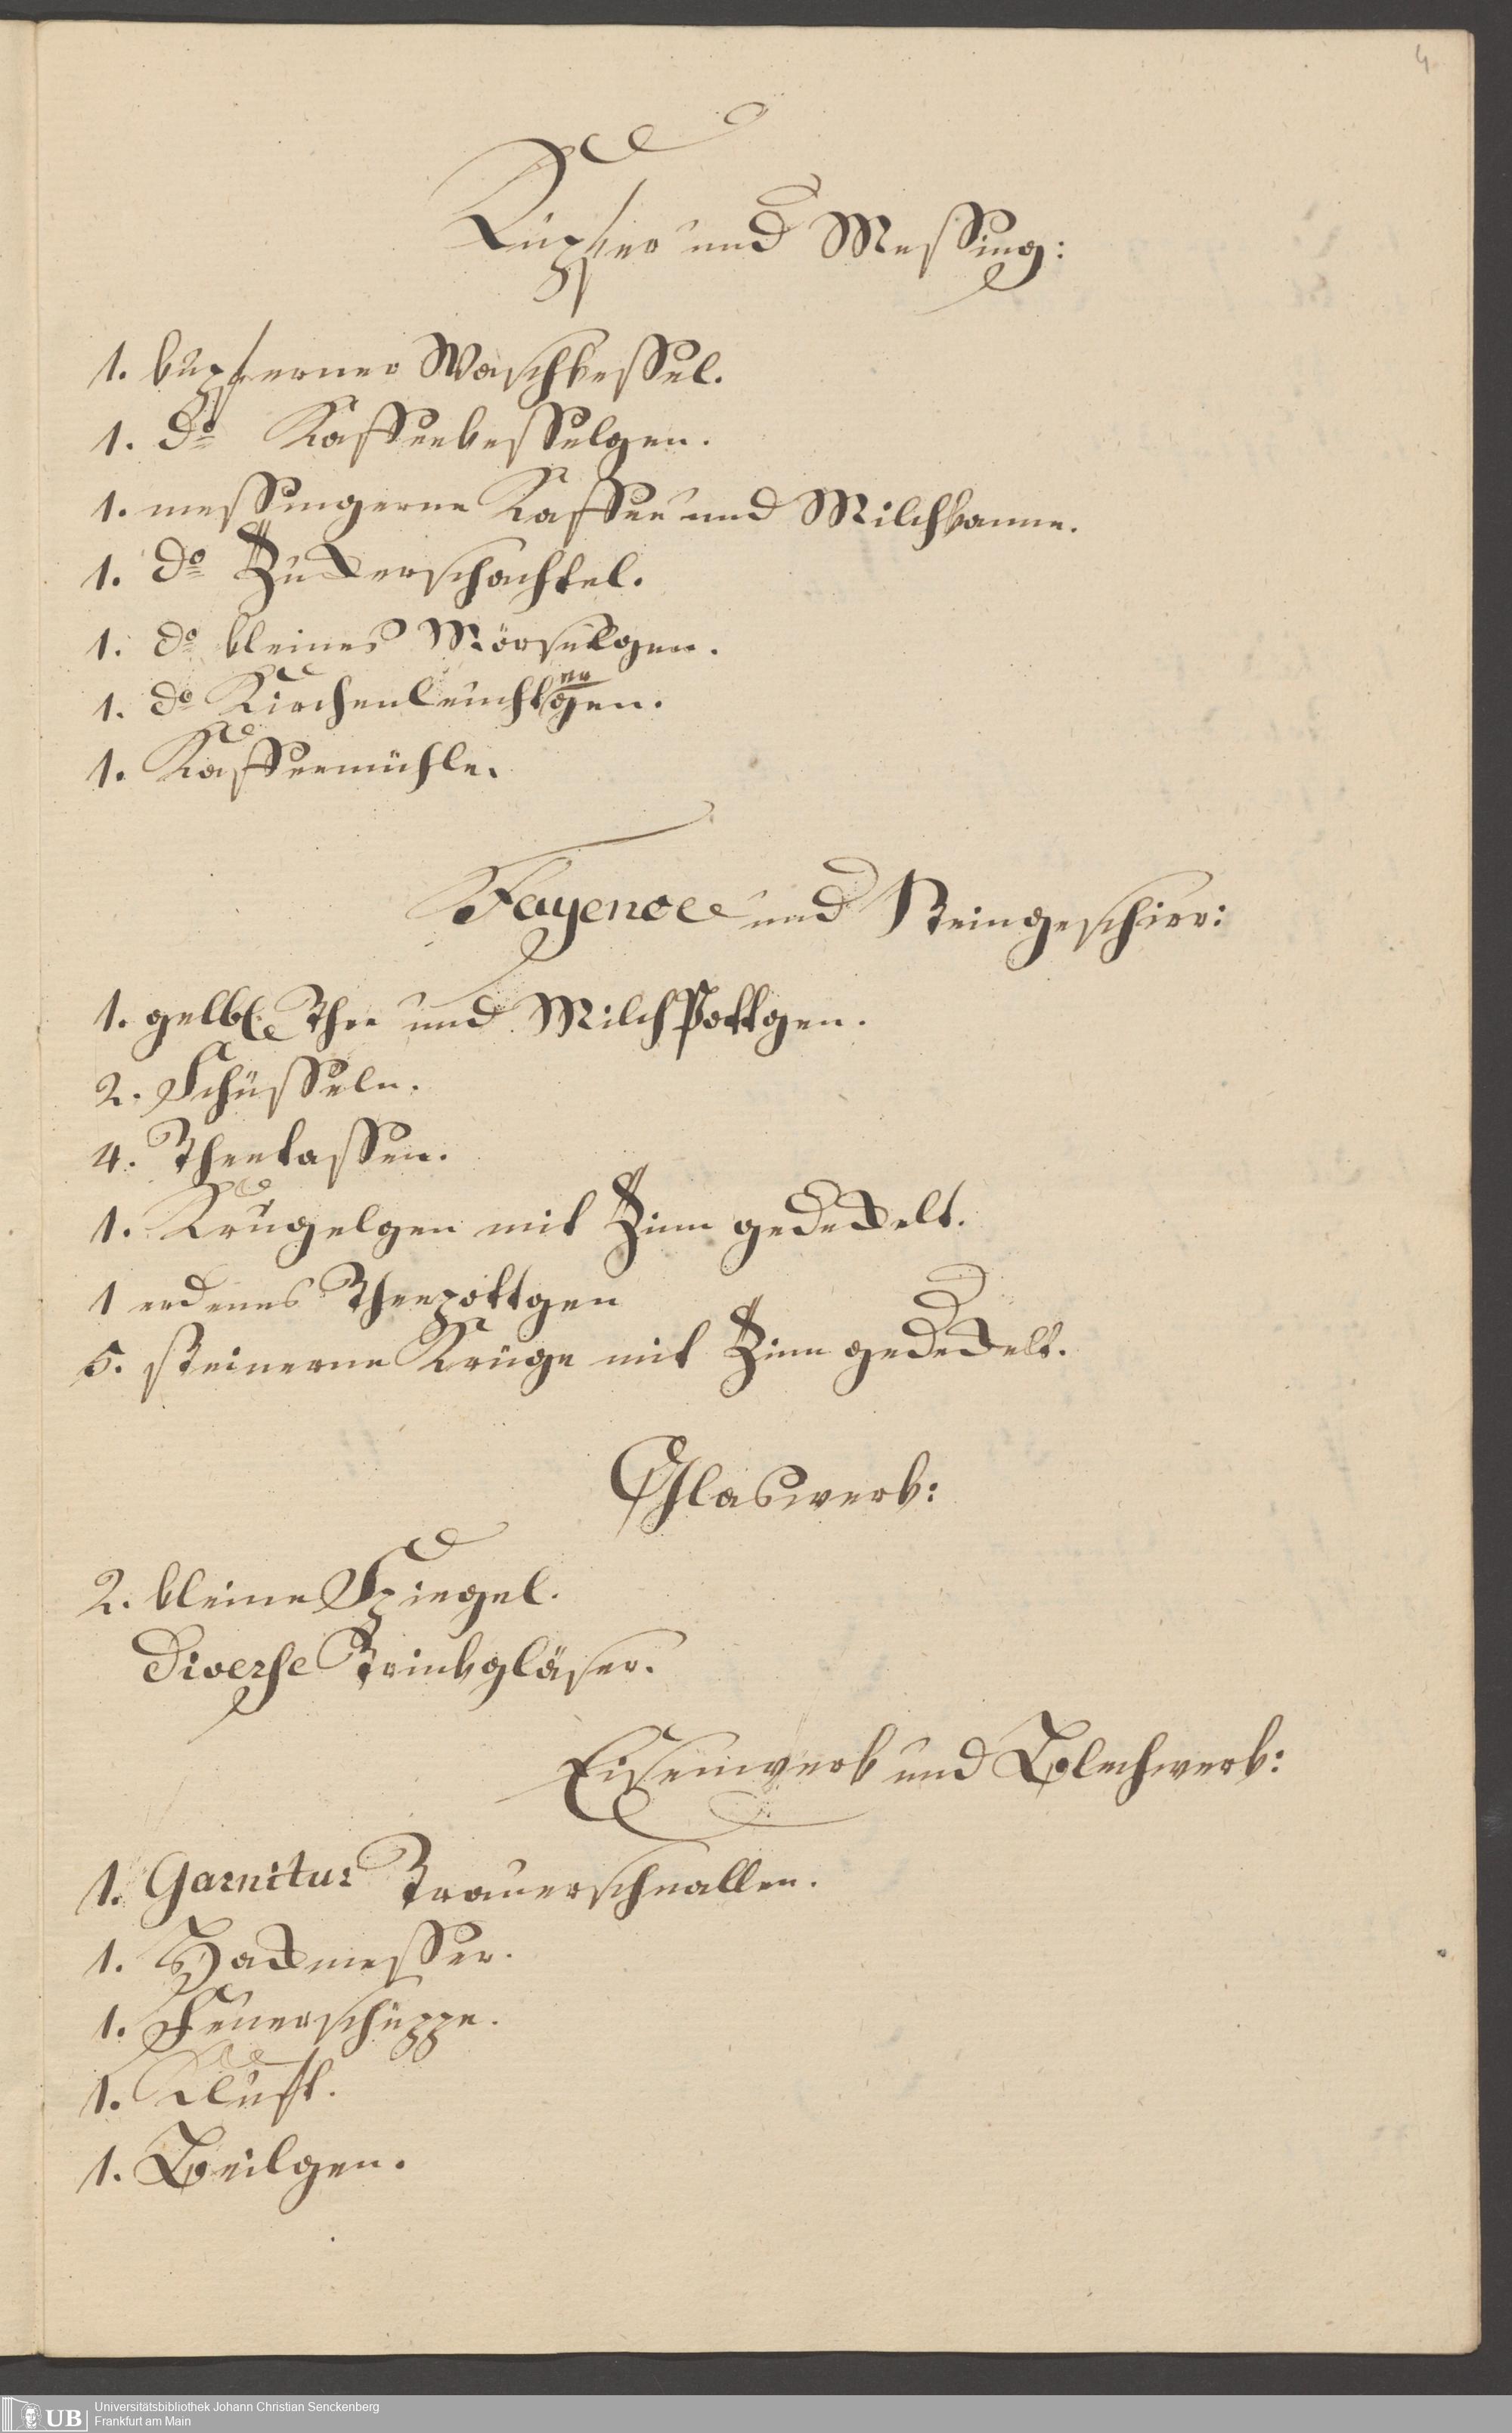 4
Kupfer und Messing:
1. kupferner Waschkessel.
1. do Kaffeekesselgen.
1. messingerne Kaffee und Milchkanne.
1. do Zuckerschachtel.
1. do kleines Mörselgen.
1. do Kirchenleuchtergen.
1. Kaffeemühle.
Fayence und Steingeschirr:
1. gelbl. Thee und Milch Pottgen.
2. Schüsseln.
4. Theetassen.
1. Krugelgen mit Zinn gedeckelt.
1 erdenes Theepottgen
5. steinerne Krüge mit Zinn gedeckelt.
Glaswerk:
2. kleine Spiegel.
Diverse Trinkgläser.
Eisenwerk und Blechwerk:
1. Garnitur Trauerschnallen.
1. Hackmesser.
1. Feuerschuppe.
1. Kluft.
1. Beilgen.
UB Universitätsbibliothek Johann Christian Senckenberg
Frankfurt am Main